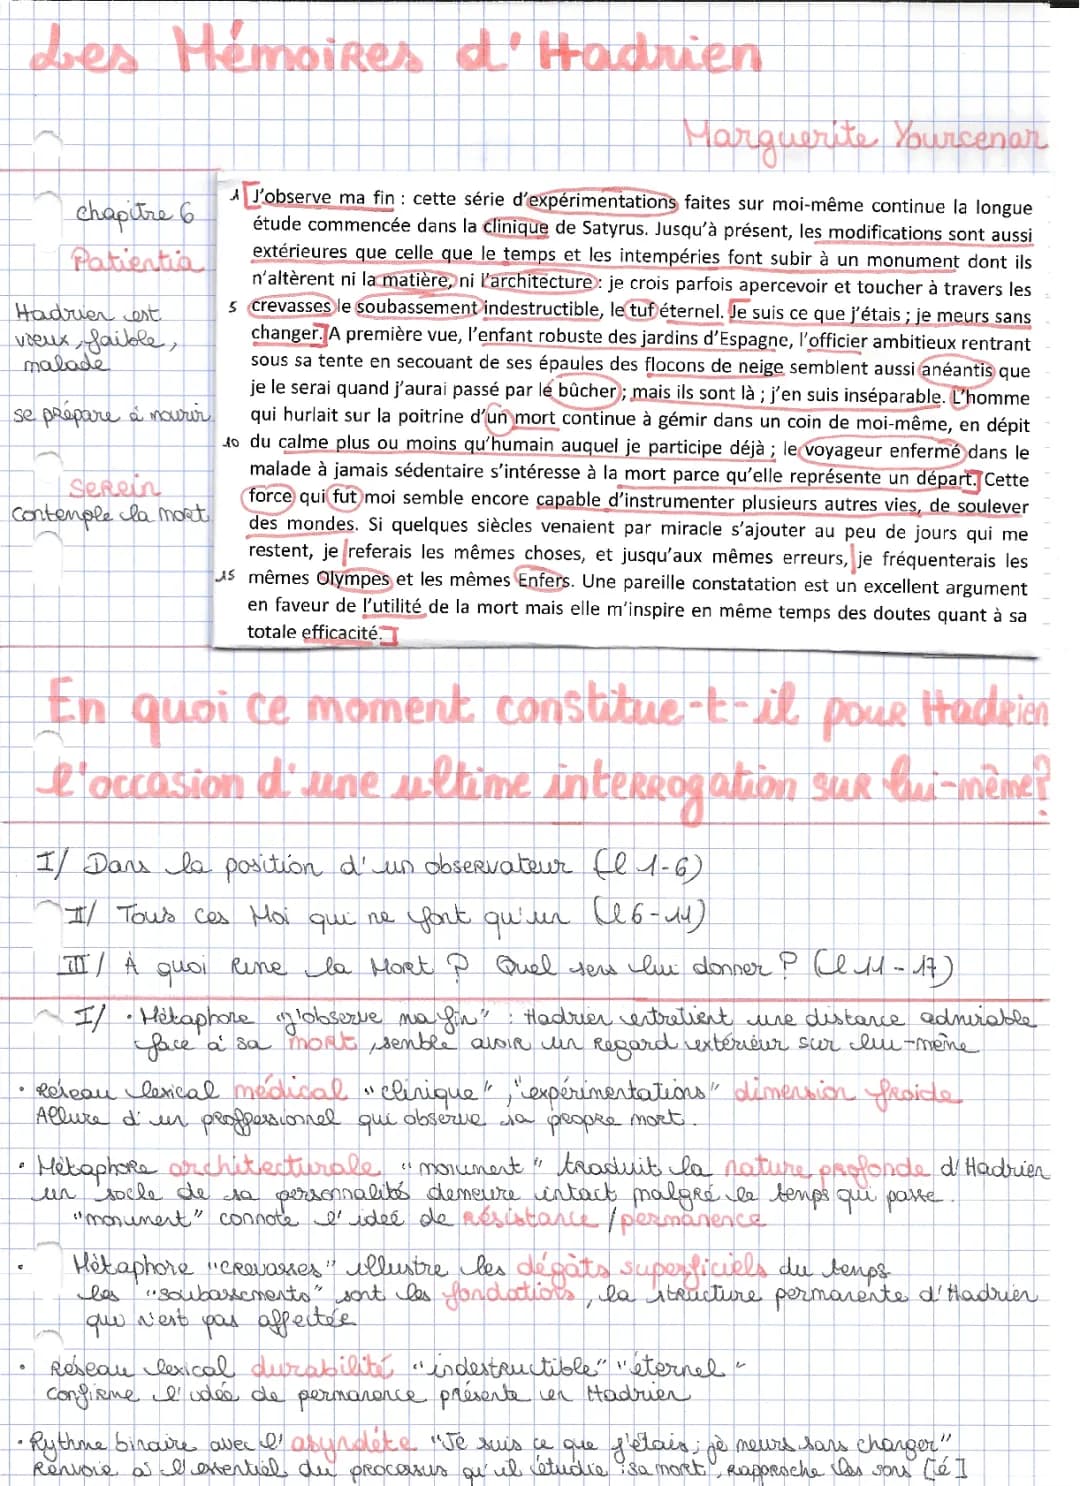 Les Mémoires d'Hadrien
Marguerite Yourcenar
chapitre 6
Patientia
Hadrien est
vieux, faible,
malade
se prépare à mourir
Serein
contemple la mort
1 [J'observe ma fin : cette série d'expérimentations faites sur moi-même continue la longue
étude commencée dans la clinique de Satyrus. Jusqu'à présent, les modifications sont aussi
extérieures que celle que le temps et les intempéries font subir à un monument dont ils
n'altèrent ni la matière, ni l'architecture : je crois parfois apercevoir et toucher à travers les
5 crevasses le soubassement indestructible, le tuf éternel. [Je suis ce que j'étais ; je meurs sans
changer.] A première vue, l'enfant robuste des jardins d'Espagne, l'officier ambitieux rentrant
sous sa tente en secouant de ses épaules des flocons de neige semblent aussi anéantis que
je le serai quand j'aurai passé par le bûcher ; mais ils sont là ; j'en suis inséparable. L'homme
qui hurlait sur la poitrine d'un mort continue à gémir dans un coin de moi-même, en dépit
10 du calme plus ou moins qu'humain auquel je participe déjà ; le voyageur enfermé dans le
malade à jamais sédentaire s'intéresse à la mort parce qu'elle représente un départ.] Cette
force qui fut moi semble encore capable d'instrumenter plusieurs autres vies, de soulever
des mondes. Si quelques siècles venaient par miracle s'ajouter au peu de jours qui me
restent, je referais les mêmes choses, et jusqu'aux mêmes erreurs, je fréquenterais les
15 mêmes Olympes et les mêmes Enfers. Une pareille constatation est un excellent argument
en faveur de l'utilité de la mort mais elle m'inspire en même temps des doutes quant à sa
totale efficacité.]
En quoi ce moment constitue-t-il pour Hadrien
l'occasion d'une ultime interrogation sur lui-même?
I/ Dans la position d'un observateur (l 1-6)
II/ Tous ces Moi qui ne font qu'un (l 6-11)
III/ À quoi rime la Mort ? Quel sens lui donner ? (l 11-17)
I/ • Métaphore "j'observe ma fin" : Hadrien entretient une distance admirable
face à sa mort, semble avoir un regard extérieur sur lui-même
• Réseau lexical médical "clinique", "expérimentations" dimension froide
Allure d'un proffessionnel qui observe sa propre mort.
• Métaphore architecturale "monument" traduit la nature profonde d'Hadrien
un socle de sa personnalité demeure intact malgré le temps qui passe.
"monument" connote l'idée de résistance / permanence
• Métaphore "crevasses" illustre les dégâts superficiels du temps
les "soubassements" sont les fondations, la structure permanente d'Hadrien
qui n'est pas affectée
• Réseau lexical durabilité "indestructible" "éternel"
confirme l'idée de permanence présente en Hadrien
• Rythme binaire avec l'asyndète "Je suis ce que j'étais ; je meurs sans changer"
Renvoie à l'essentiel du processus qu'il étudie : sa mort, rapproche les sons [é]